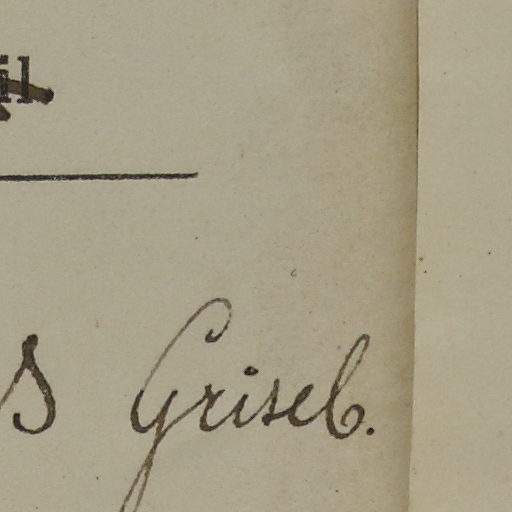 il
s Griseb.